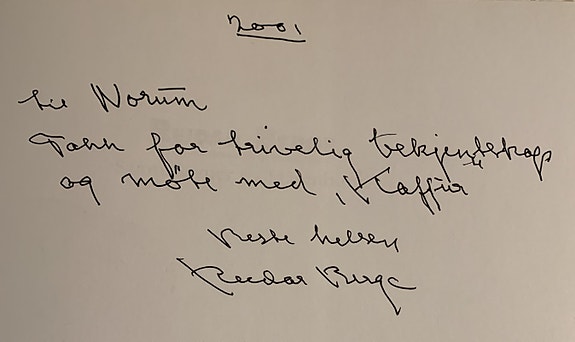 2001
til Norum
Takk for trivelig bekjentskap
og møte med "Kaffur"
Beste helsen
Reidar Berge